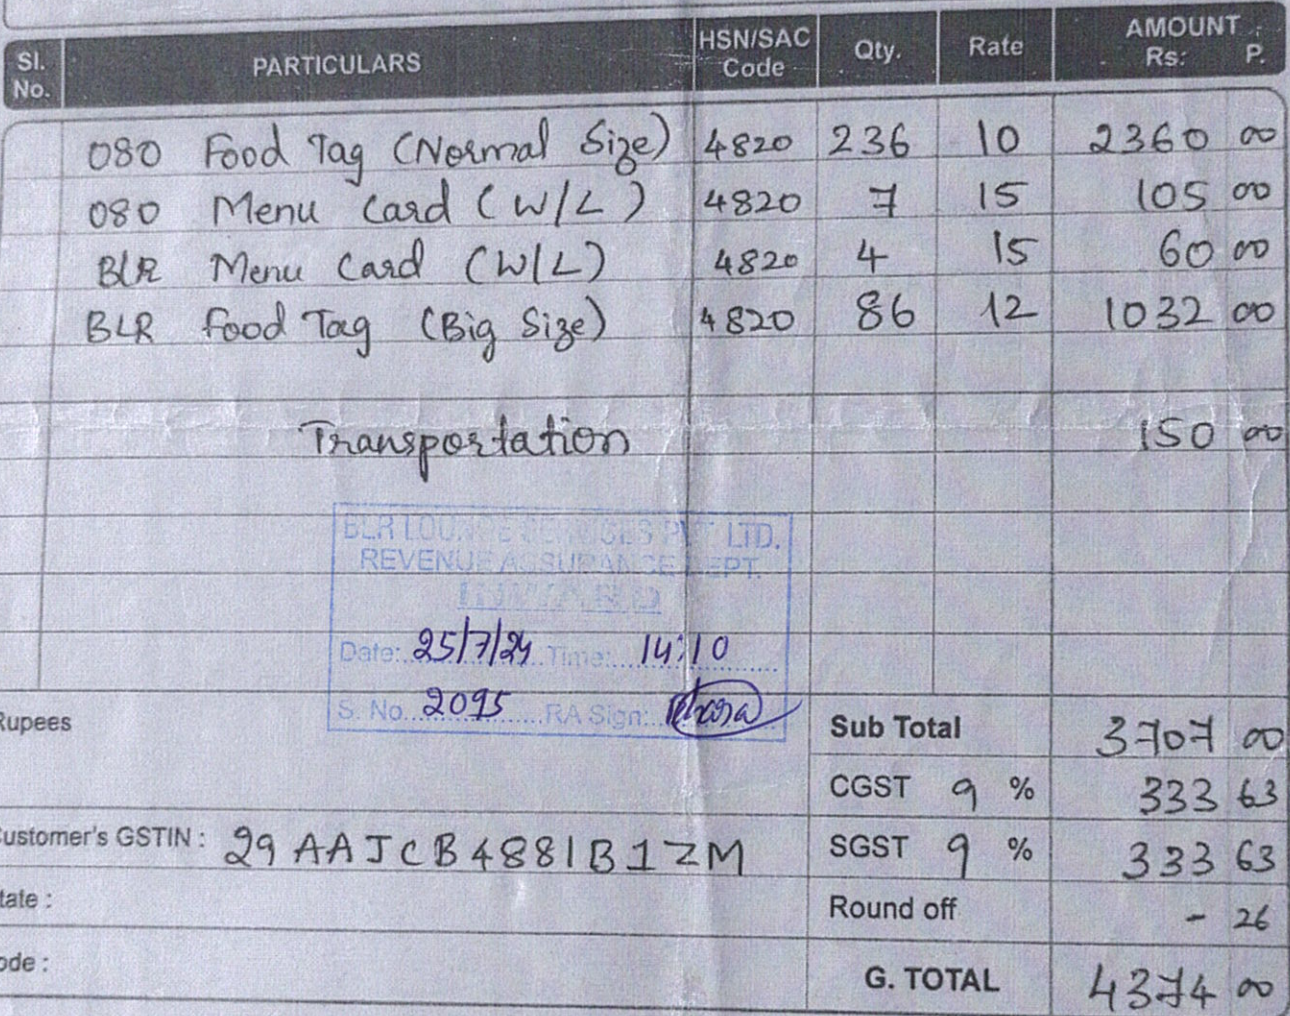 Sl. No. PARTICULARS HSN/SAC Code Qty. Rate AMOUNT Rs: P.
080 Food Tag (Normal Size) 4820 236 10 2360 00
080 Menu Card (W/L) 4820 7 15 105 00
BLR Menu Card (W/L) 4820 4 15 60 00
BLR Food Tag (Big Size) 4820 86 12 1032 00
Transportation 150 00
BLR LOUNGE SERVICES PVT LTD.
REVENUE ASSURANCE DEPT.
INWARD
Date: 25/7/24 Time: 14:10
S. No. 2095 RA Sign:
Rupees
Sub Total 3707 00
CGST 9 % 333 63
Customer's GSTIN : 29AAJCB4881B1ZM
SGST 9 % 333 63
tate :
Round off - 26
ode :
G. TOTAL 4374 00